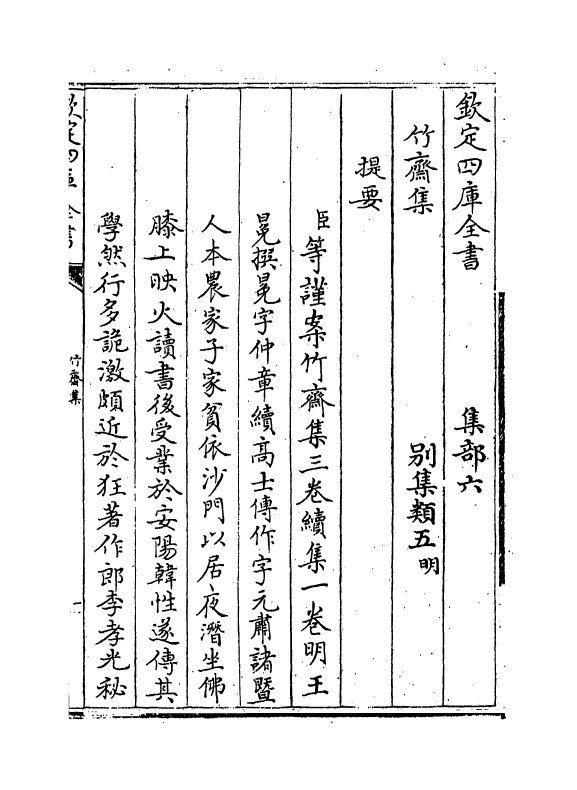 欽定四庫全書　集部六
竹齋集　别集類五明
提要
臣等謹案竹齋集三卷續集一卷明王
冕撰冕字仲章續髙士傳作字元肅諸暨
人本農家子家貧依沙門以居夜潛坐佛
膝上映火讀書後受業於安陽韓性遂傳其
學然行多詭激頗近於狂著作郎李孝光秘
欽定四庫全書
竹齋集
一